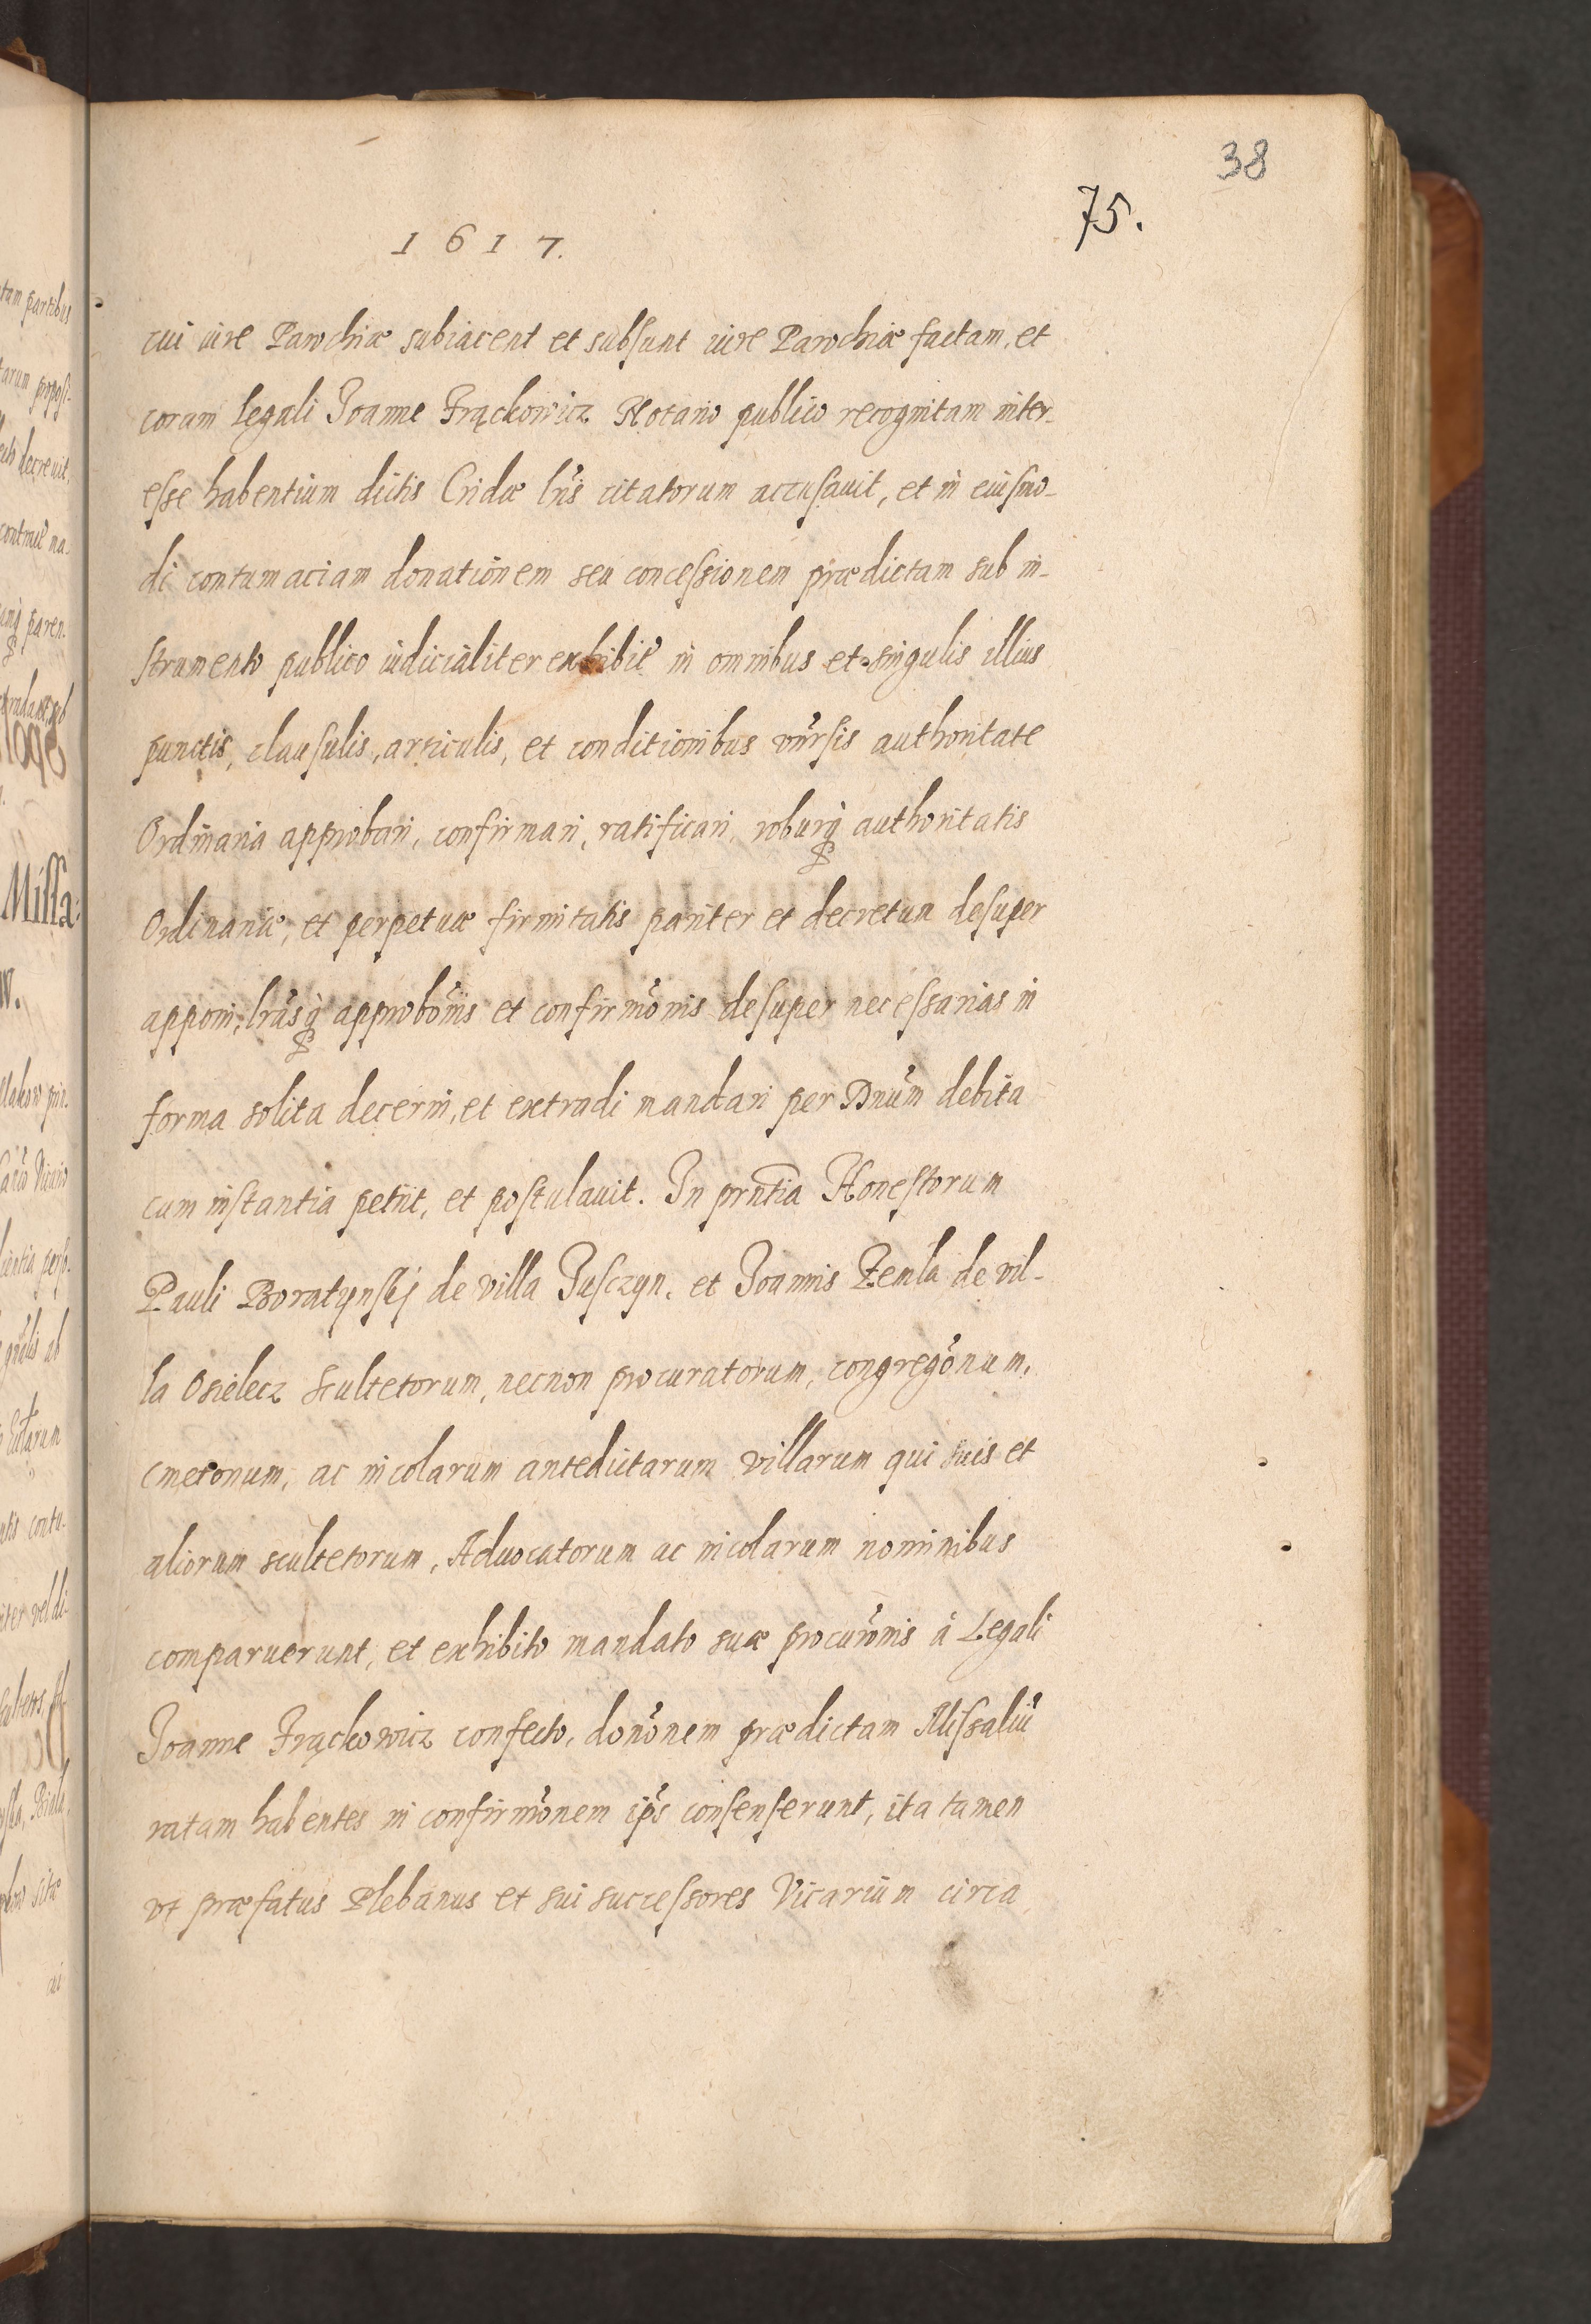 38
75.
1617.
cui iure Parochiæ subiacent et subsunt iure Parochiæ factam, et
coram Legali Joanne Frąckowicz Notario publico recognitam inter-
esse habentium dictis Cridæ lris citatorum accusauit, et in eiusmo-
di contumaciam donationem seu concessionem prædictam sub in-
strumento publico iudicialiter exhibit in omnibus et singulis illius
punctis, clausulis, articulis, et conditionibus vnirsis authoritate
Ordinaria approbari, confirmari, ratificari, roburq authoritatis
Ordinariæ, et perpetuæ firmitatis pariter et decretum desuper
apponi, lrasq approbonis et confirmonis desuper necessarias in
forma solita decerni, et extradi mandari per Dnum debita
cum instantia petiit, et postulauit. In prntia Honestorum
Pauli Boratynskj de villa Jusczyn, et Joannis Zemla de vil-
la Osielecz scultetorum, necnon procuratorum, congregonum,
Cmetonum, ac incolarum antedictarum villarum qui suis et
aliorum scultetorum, Aduocatorum ac incolarum nominibus
comparuerunt, et exhibito mandato suæ procuronis à Legali
Joanne Frąckowicz confecto, dononem prædictam Missaliu
ratam habentes in confirmonem ips consenserunt, ita tamen
vt præfatus Plebanus et sui successores Vicarium circa